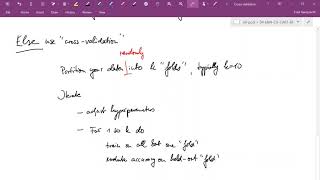 Cross validation
Else use "cross-validation"
randomly
Partition your data into k "folds", typically k=10
Iterate
- adjust hyperparameters
- For 1 to k do
train on all but one "fold"
evaluate accuracy on hold-out "fold"